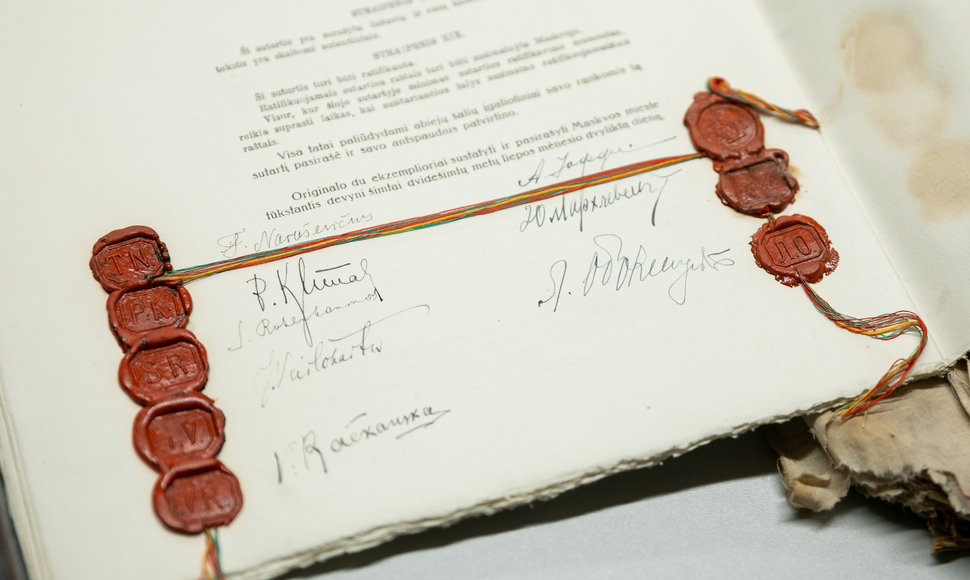 STRAIPSNIS
Ši sutartis yra surašyta lietuvių ir rusų
tekstu yra skaitomi autentiniais.
STRAIPSNIS XIX.
Ši sutartis turi būti ratifikuota.
Ratifikuojamais sutarties raštais turi būti susimainyta Maskvoje.
Visur, kur šioje sutartyje minimas sutarties ratifikavimo momentas,
reikia suprasti laikas, kai susitariančios šalys susimaino ratifikuojamaisiais
raštais.
Visa tatai paliūdydami abiejų šalių įgaliotiniai savo rankomis šą
sutartį pasirašė ir savo antspaudais patvirtino.
Originalo du ekzemplioriai sustatyti ir pasirašyti Maskvos mieste
tūkstantis devyni šimtai dvidešimtų metų liepos mėnesio dvyliktą dieną.
T. Narusevičius
P. Klimas
S. Rosenbaumas
J. Vailokaitis
V. Račkauska
А. Иоффе
Ю Мархлевский
Л. Оболенский
TN
PK
SR
V
VR
Л.О.